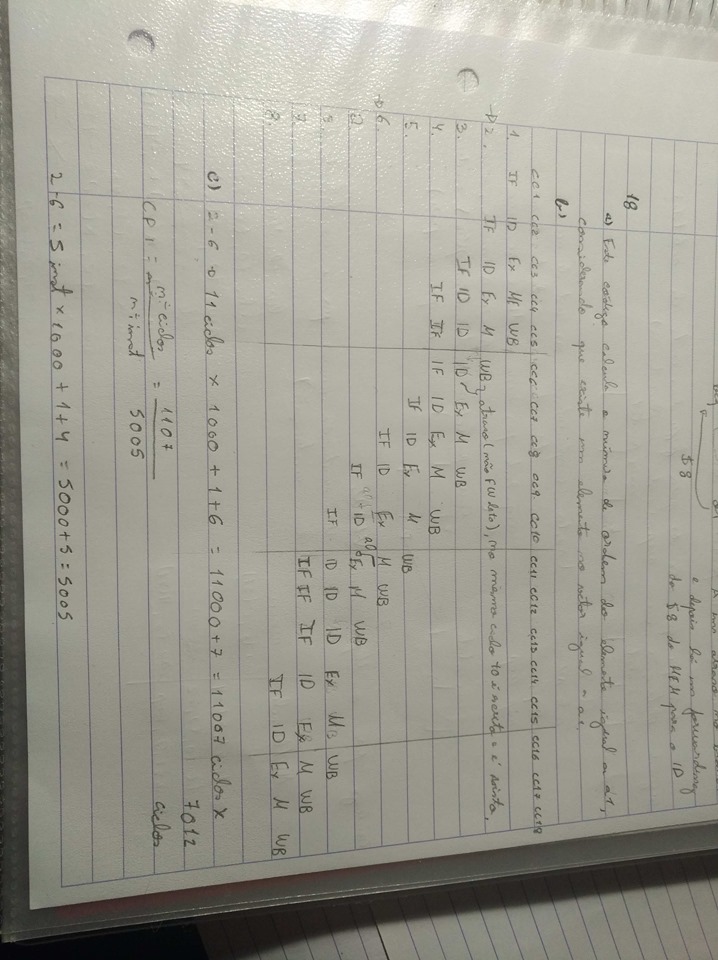 $8
e depois há um forwarding
do $8 de MEM para o ID
18
a) Este código calcula o número de ordem do elemento igual a a1,
considerando que existe um elemento no vetor igual a a1.
b)
CC1 CC2 CC3 CC4 CC5 CC6 CC7 CC8 CC9 CC10 CC11 CC12 CC13 CC14 CC15 CC16 CC17 CC18
1. IF ID Ex ME WB
→ 2. IF ID Ex M WB atraso (não FW), no mesmo ciclo t0 é escrita e é
3. IF ID ID ID Ex M WB
4. IF IF IF ID Ex M WB
5. IF ID Ex M WB
→ 6. IF ID Ex M WB
2) IF ID Ex M WB
3. IF ID ID ID Ex M WB
7. IF IF IF ID Ex M WB
8. IF ID Ex M WB
c) 2-6 → 11 ciclos × 1000 + 1 + 6 = 11000 + 7 = 11007 ciclos ×
7012
ciclos
CPI = nº ciclos / nº inst = 1107 / 5005
2-6 = 5 inst × 1000 + 1 + 4 = 5000 + 5 = 5005